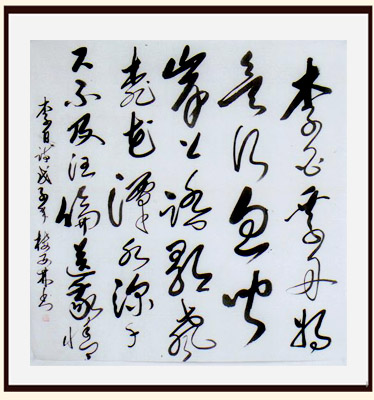 李白乘舟將
欲行忽聞
岸上踏歌聲
桃花潭水深千
尺不及汪倫送我情
李白詩戊子年